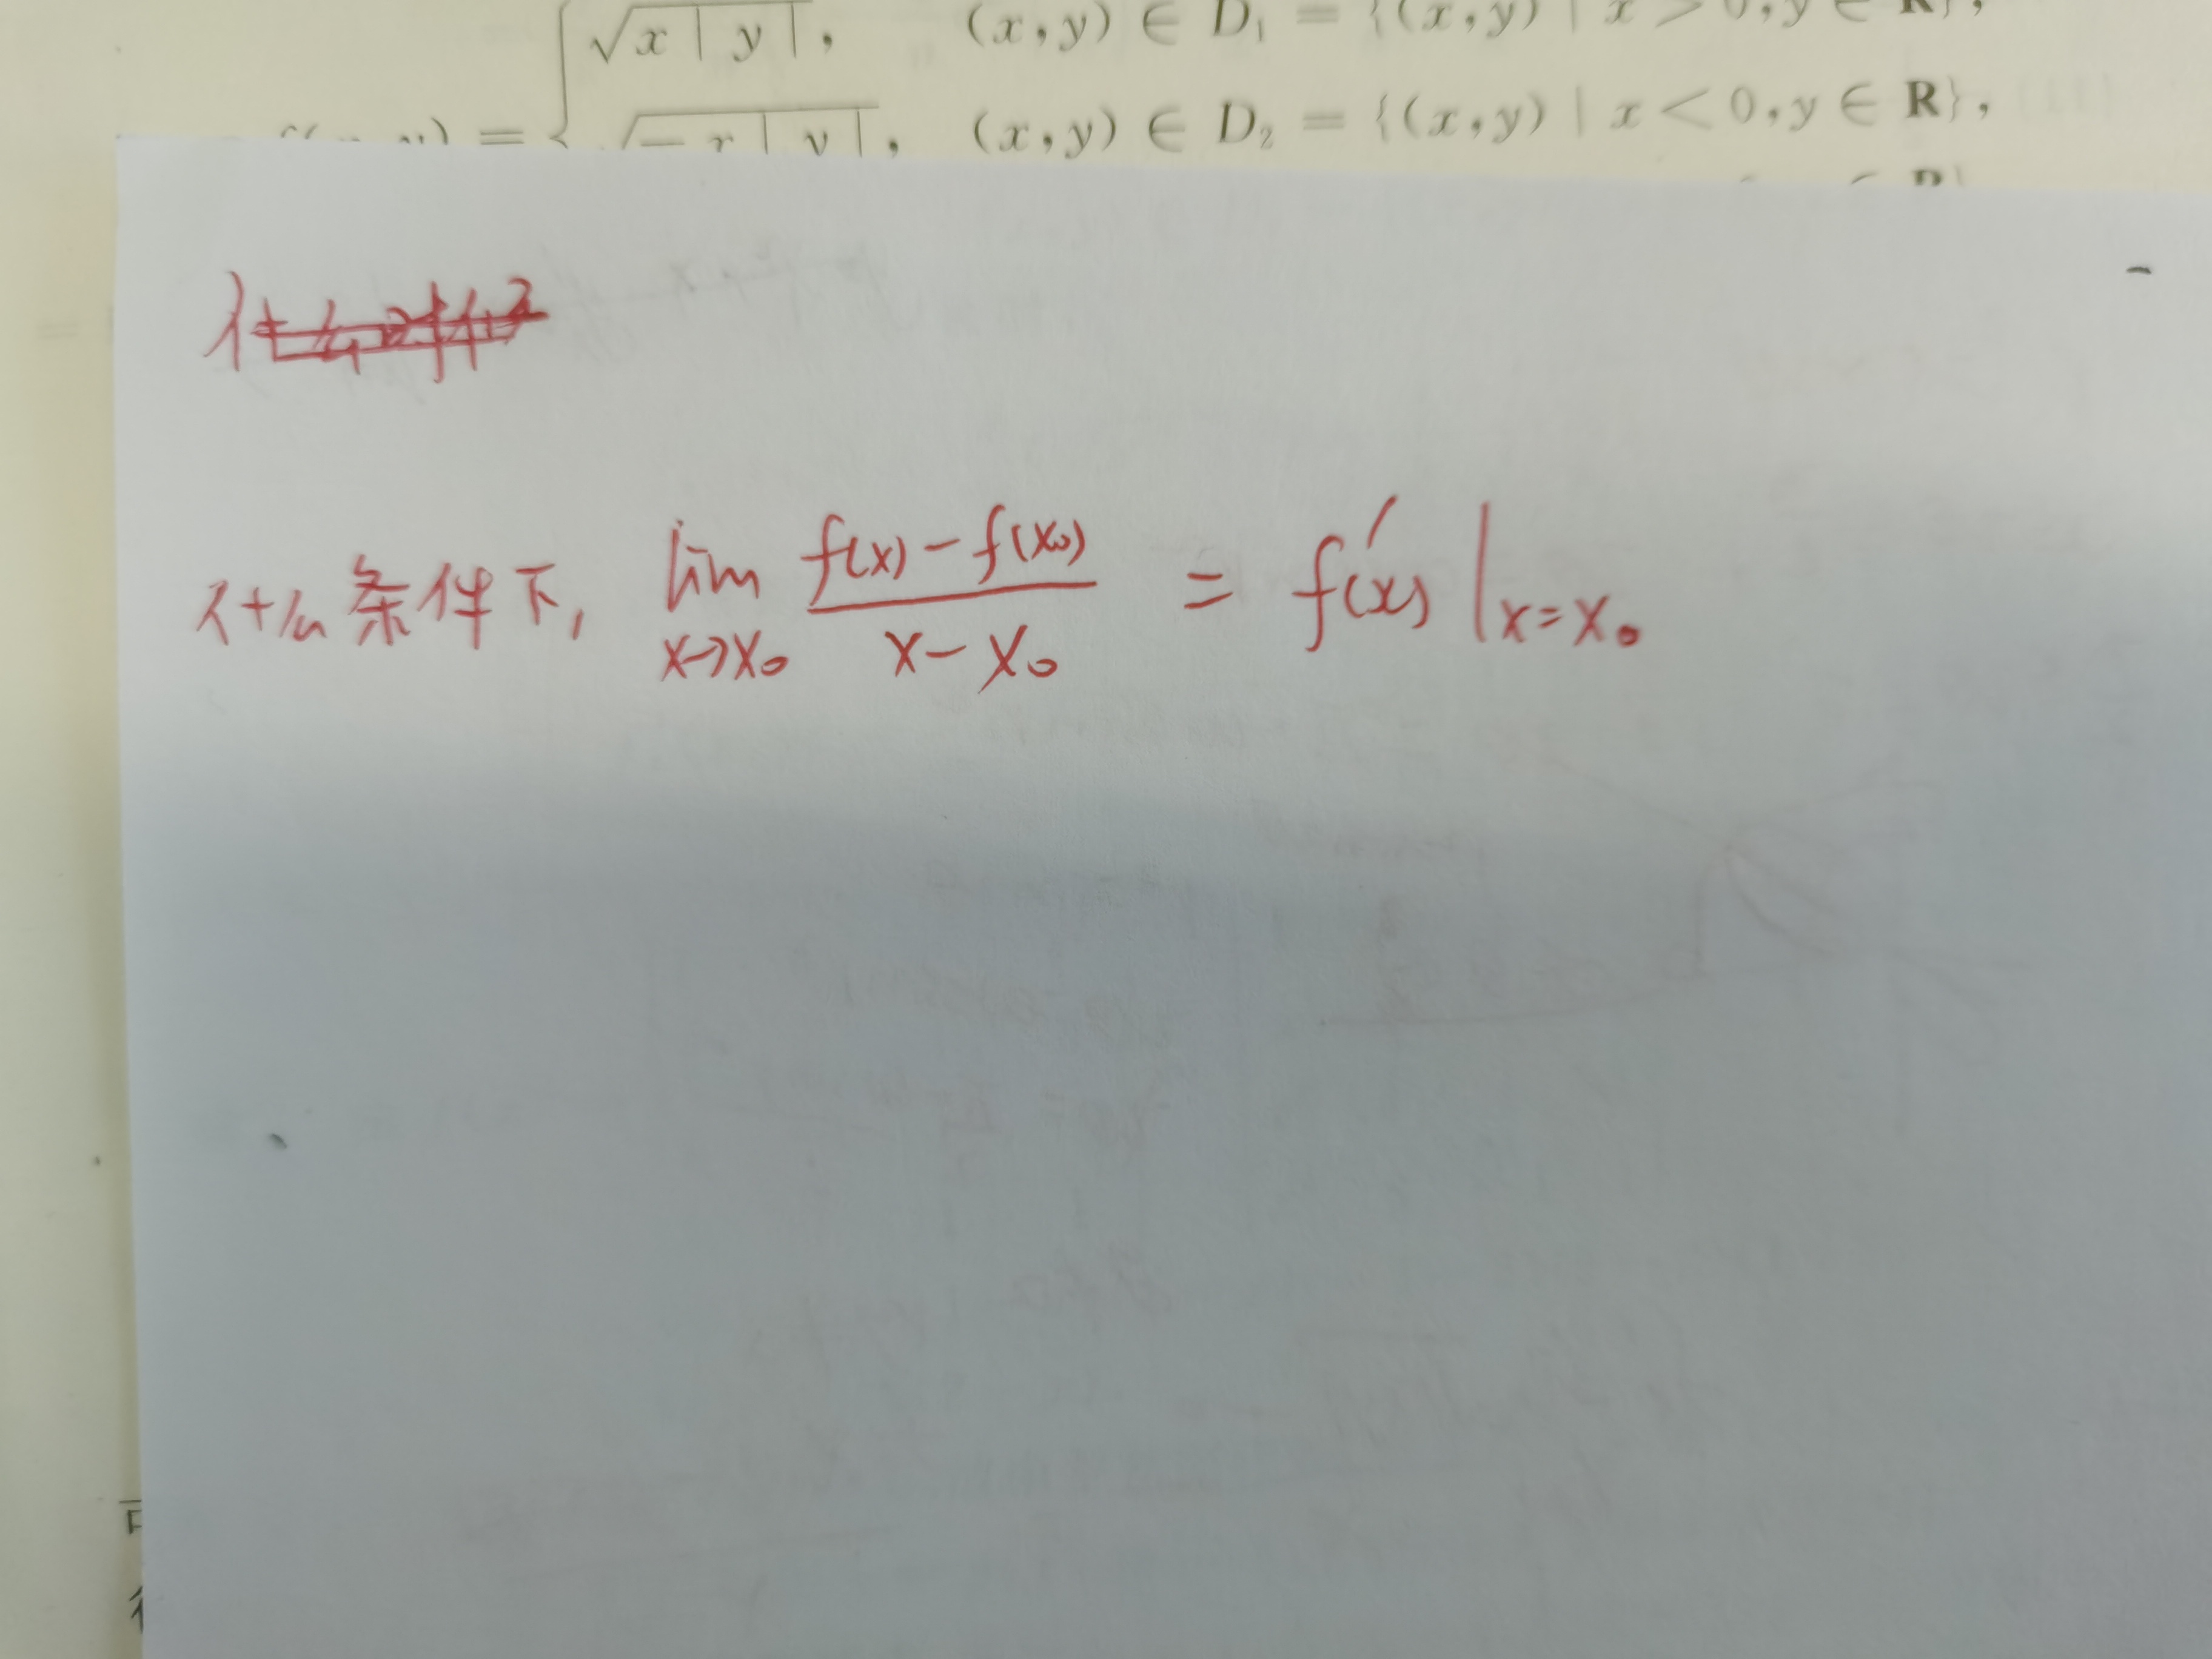 √x|y|, (x,y) ∈ D₁ = {(x,y) | x > 0, y ∈ R},
= √−x|y|, (x,y) ∈ D₂ = {(x,y) | x < 0, y ∈ R},
什么条件下, lim x→x₀ (f(x) − f(x₀)) / (x − x₀) = f′(x) |x=x₀